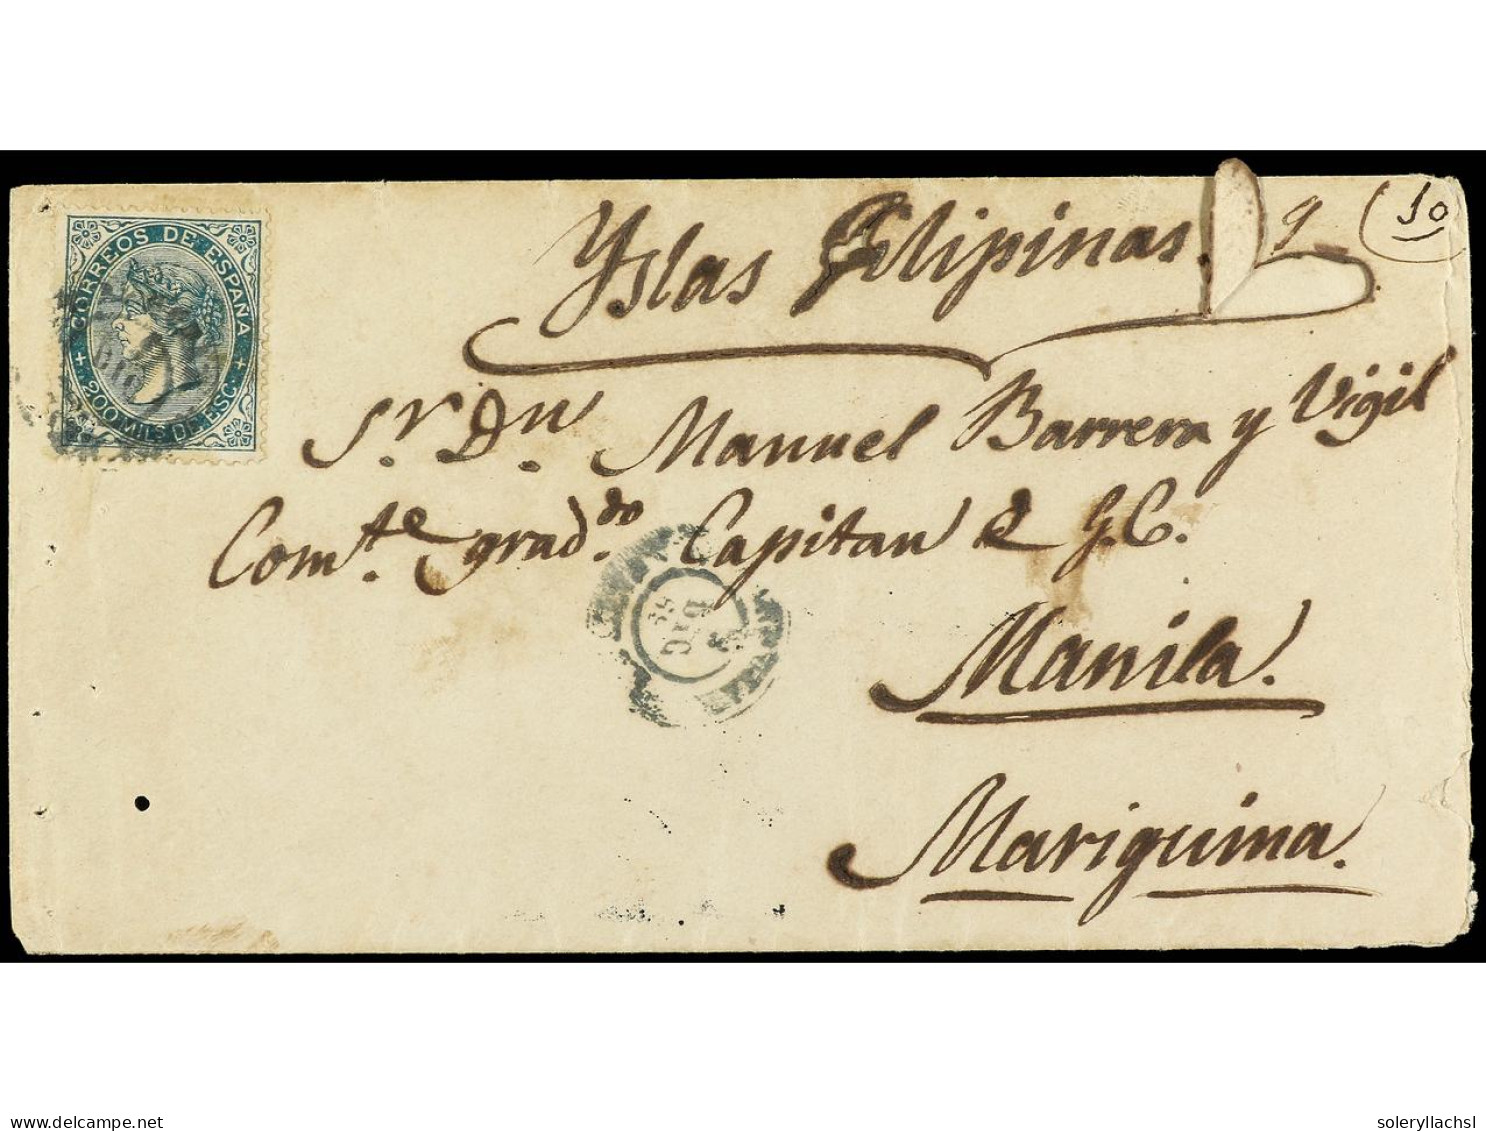 CORREOS DE ESPAÑA
200 MILS DE ESC.
Yslas Filipinas.
9
10
Sr. Dn. Manuel Barrera y Vigil
Comte. graddo. Capitan 2 G.C.
DIC
68
Manila.
Mariquina.
delcampe.net
soleryllachsl